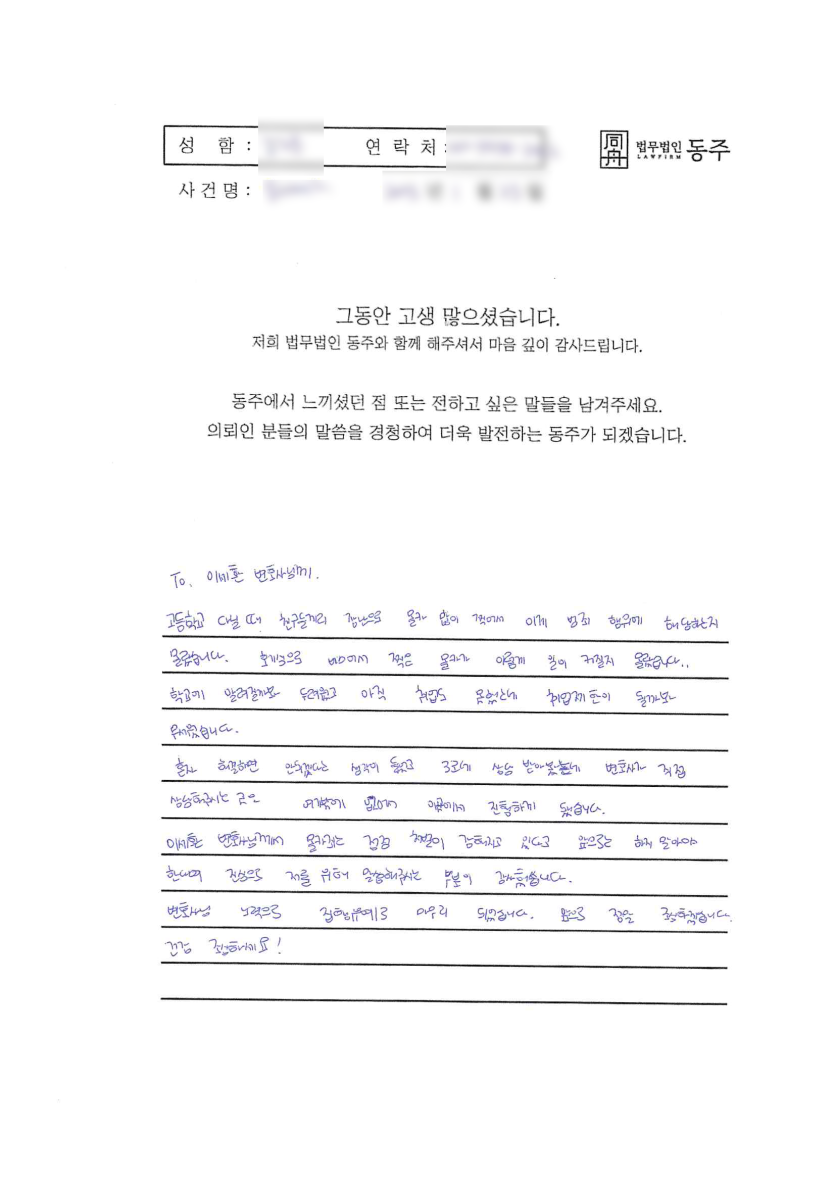 성 함 : 연 락 처 :
同舟 법무법인 동주
LAWFIRM
사 건 명 :
그동안 고생 많으셨습니다.
저희 법무법인 동주와 함께 해주셔서 마음 깊이 감사드립니다.
동주에서 느끼셨던 점 또는 전하고 싶은 말들을 남겨주세요.
의뢰인 분들의 말씀을 경청하여 더욱 발전하는 동주가 되겠습니다.
To. 이세환 변호사님께.
고등학교 다닐 때 친구들끼리 장난으로 몰카 많이 찍어서 이게 범죄 행위에 해당하는지
몰랐습니다. 호기심으로 찍은 몰카가 이렇게 일이 커질지 몰랐습니다..
학교에 알려질까봐 두려웠고 아직 취업도 못했는데 취업제한이 될까봐
무서웠습니다.
혼자 해결하면 안되겠다는 생각이 들었고 3군데 상담 받아봤는데 변호사가 직접
상담해주시는 곳은 여기밖에 없어서 이곳에서 진행하게 됐습니다.
이세환 변호사님께서 몰카죄는 점점 처벌이 강해지고 있다고 앞으로는 하지 말아야
한다며 진심으로 저를 위해 말씀해주시는 부분이 감사했습니다.
변호사님 노력으로 집행유예로 마무리 되었습니다. 조심하겠습니다.
건강 조심하세요!